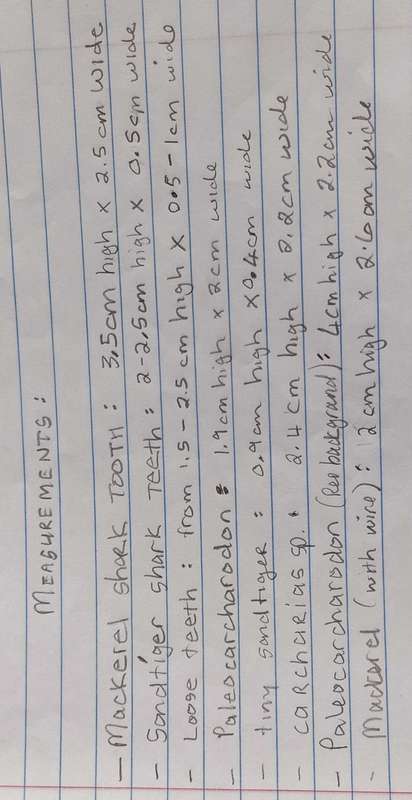 MEASUREMENTS:
- Mackerel shark TOOTH: 3.5cm high x 2.5cm wide
- Sandtiger shark Teeth: 2-2.5cm high x 0.5cm wide
- Loose teeth: from 1.5-2.5cm high x 0.5-1cm wide
- Paleocarcharodon: 1.9cm high x 2cm wide
- tiny sandtiger: 0.9cm high x 0.4cm wide
- carcharias sp. 2.4cm high x 2.2cm wide
- Paleocarcharodon (Red backgrand): 4cm high x 2.2cm wide
- Mackarel (with wire): 12cm high x 2.6cm wide